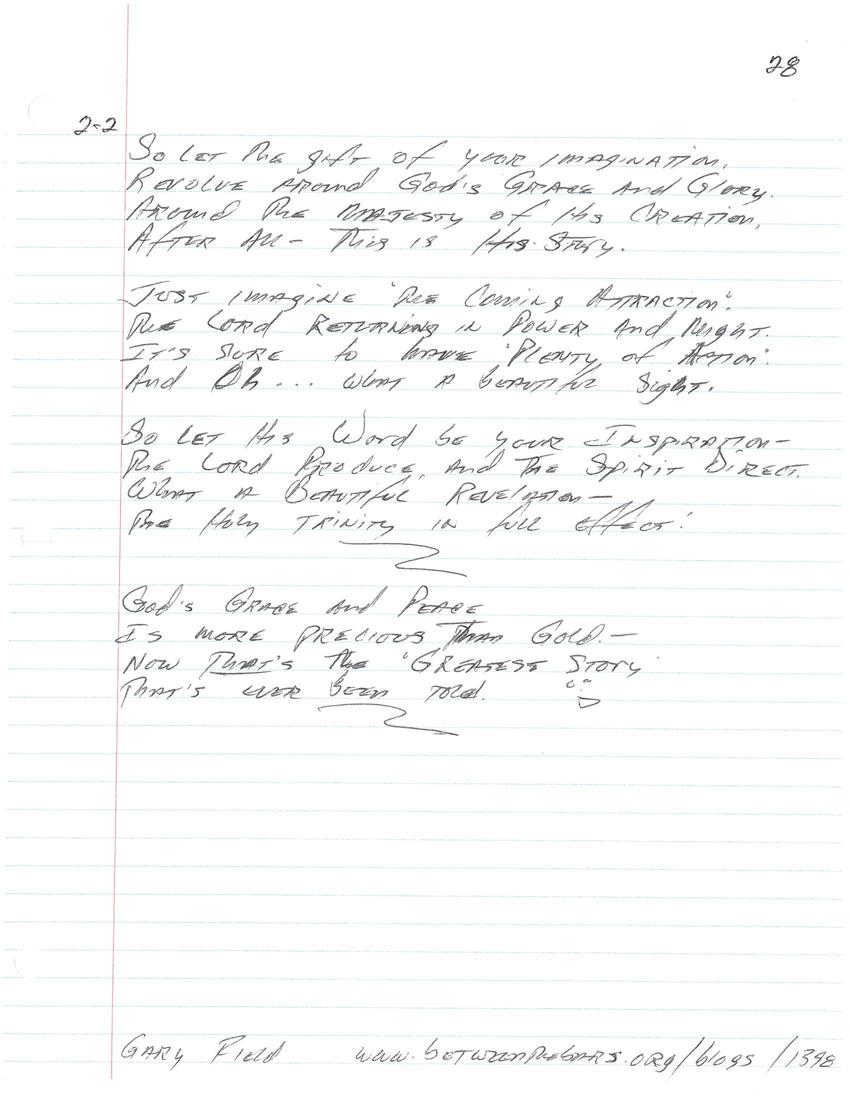 28
2-2
So let the gift of your imagination,
Revolve around God's Grace and Glory.
Around the majesty of His Creation,
After all - This is His-Story.
Just imagine "The Coming Attraction".
The Lord returning in Power and Might.
It's sure to have "Plenty of Action".
And Oh... what a beautiful sight.
So let His Word be your Inspiration-
The Lord Produce, and the Spirit Direct.
What a Beautiful Revelation-
The Holy Trinity in full effect!
God's Grace and Peace
Is more precious than Gold.-
Now That's the "Greatest Story
That's ever been told.
Gary Field www.betweenthebars.org/blogs/1398